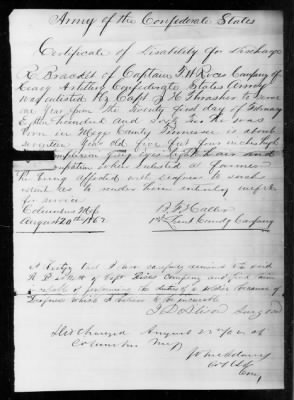 Army of the Confederate States
Certificate of Disability for Discharge
of Captain T. W. Rices Company of
Heavy Artillery Confederate States Army
was enlisted by Capt J. H. Thrasher to serve
one year from the Twenty first day of February
Eighteen hundred and Sixty two. He was
born in Meggs County Tennessee is about
seventeen Years old five feet four inches high
complexion Grey Eyes Light Hair and
occupation when Enlisted a farmer
He being affected with deafness to such
extent as to render him entirely unfit
for service
Columbus Miss
August 20th 1862
1st Lieut Comdg Company
I Certify that I have carefully examined the said
of Capt Rices Company and find him
incapable of performing the duties of a soldier because of
Deafness which I believe to be incurable
Surgeon
Discharged August 22nd 1862 at
Columbus Miss